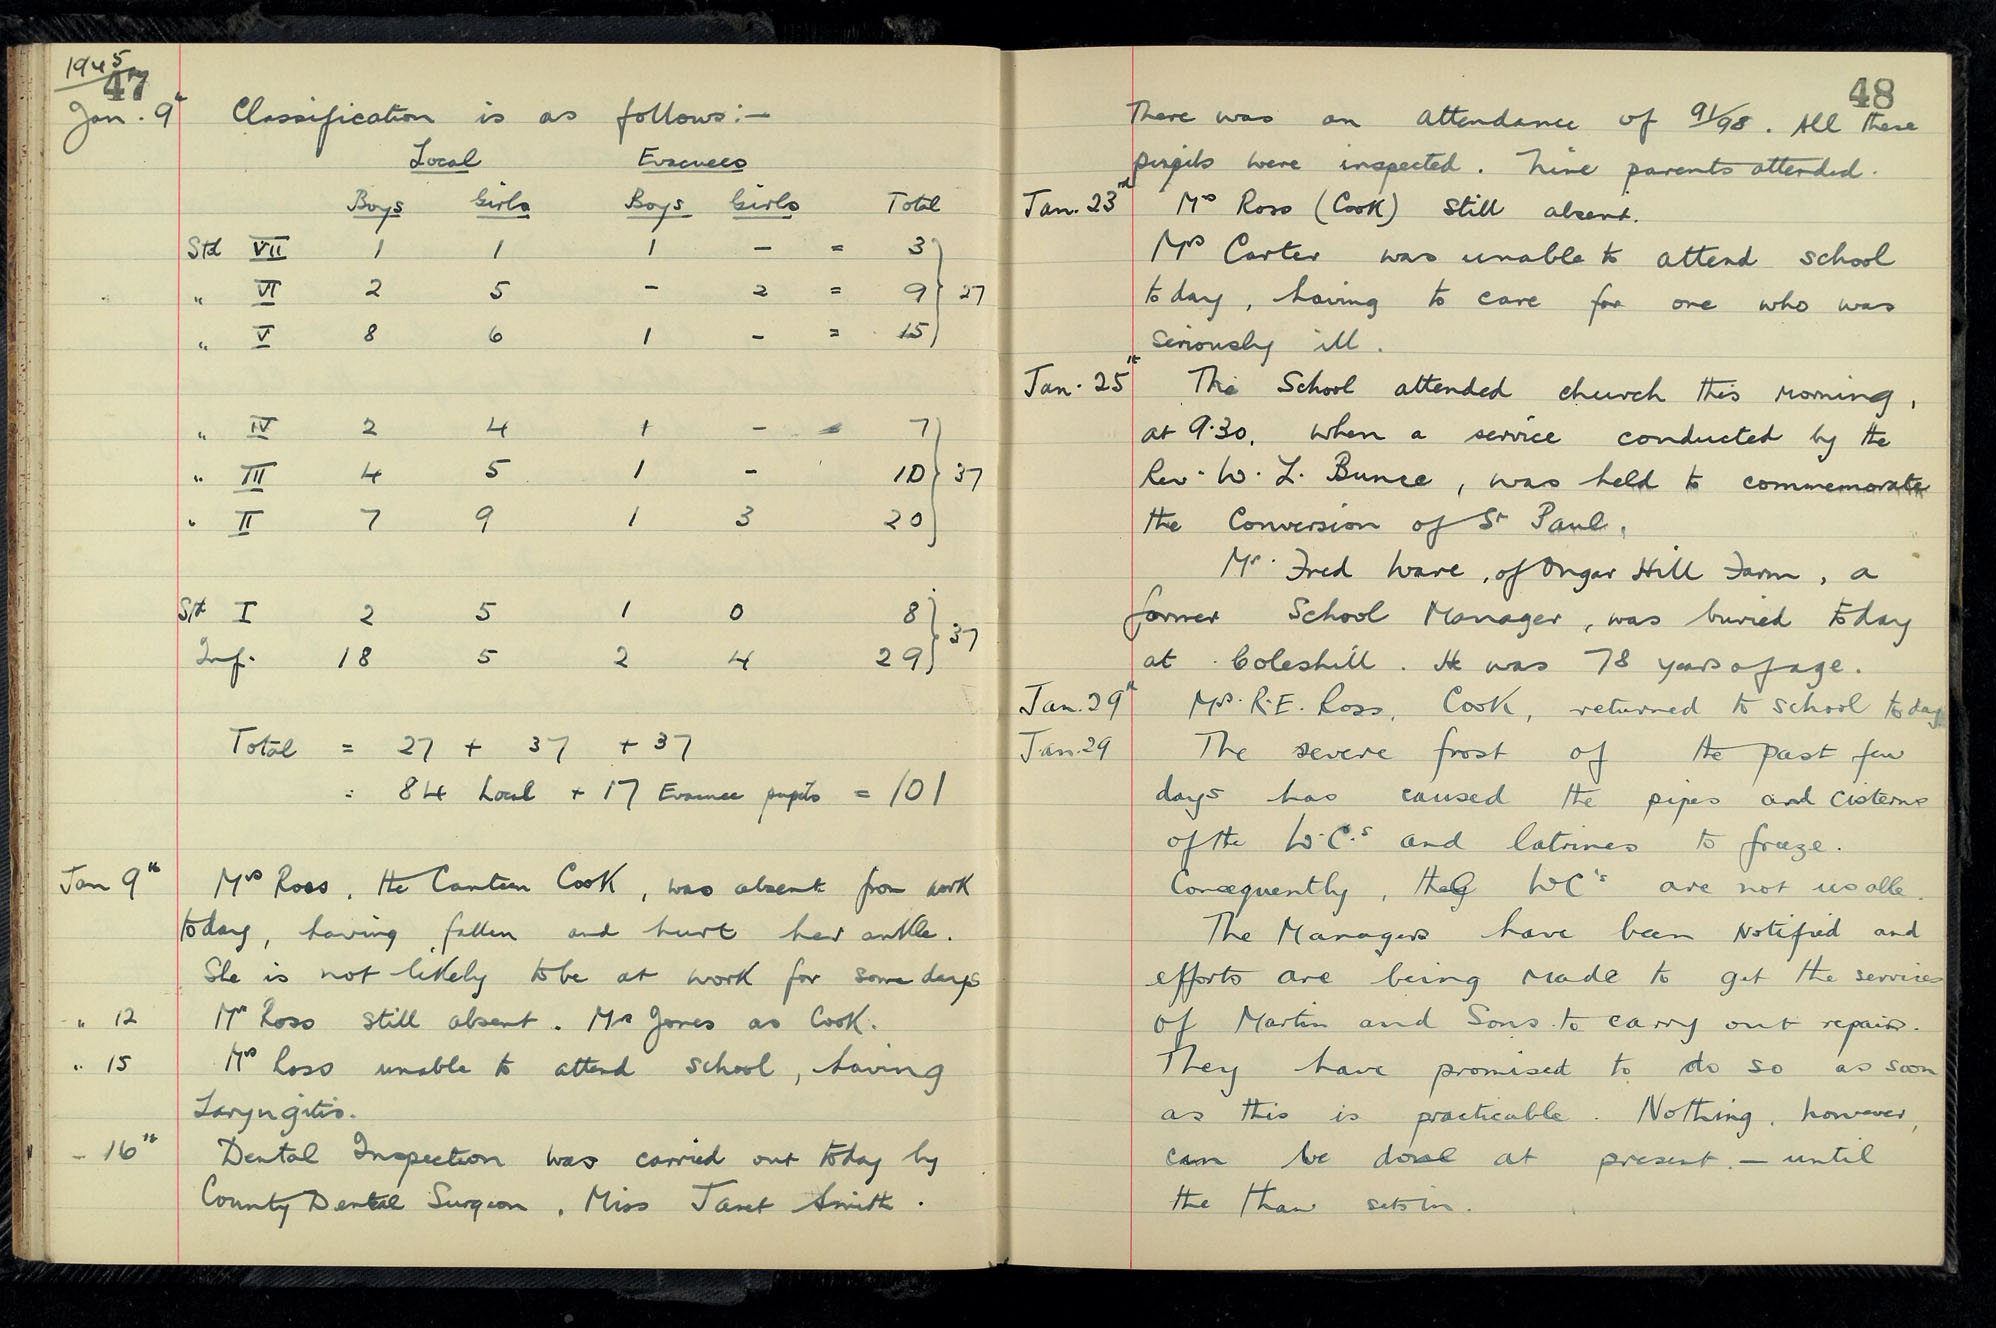 1945
47
Jan. 9th Classification is as follows:—
Local Evacuees
Boys Girls Boys Girls Total
Std VII 1 1 1 – = 3
" VI 2 5 – 2 = 9 } 27
" V 8 6 1 – = 15
" IV 2 4 1 – = 7
" III 4 5 1 – 10 } 37
" II 7 9 1 3 20
Std I 2 5 1 0 8
Inf. 18 5 2 4 29 } 37
Total = 27 + 37 + 37
= 84 Local + 17 Evacuee pupils = 101
Jan 9th Mrs Ross, the Canteen Cook, was absent from work
today, having fallen and hurt her ankle.
She is not likely to be at work for some days
" 12 Mrs Ross still absent. Mrs Jones as Cook.
" 15 Mrs Ross unable to attend school, having
Laryngitis.
– 16th Dental Inspection was carried out today by
County Dental Surgeon, Miss Janet Smith.
48
There was an attendance of 91/98. All these
pupils were inspected. Nine parents attended.
Jan. 23rd Mrs Ross (Cook) still absent.
Mrs Carter was unable to attend school
today, having to care for one who was
seriously ill.
Jan. 25th The School attended church this morning,
at 9.30, when a service conducted by the
Rev. W. L. Bunce, was held to commemorate
the Conversion of St Paul.
Mr. Fred Ware, of Ongar Hill Farm, a
former School Manager, was buried today
at Coleshill. He was 78 years of age.
Jan. 29th Mrs. R.E. Ross, Cook, returned to school today
Jan. 29 The severe frost of the past few
days has caused the pipes and cisterns
of the W.C.s and latrines to freeze.
Consequently, the WC's are not usable.
The Managers have been notified and
efforts are being made to get the services
of Martin and Sons to carry out repairs.
They have promised to do so as soon
as this is practicable. Nothing, however,
can be done at present – until
the thaw sets in.